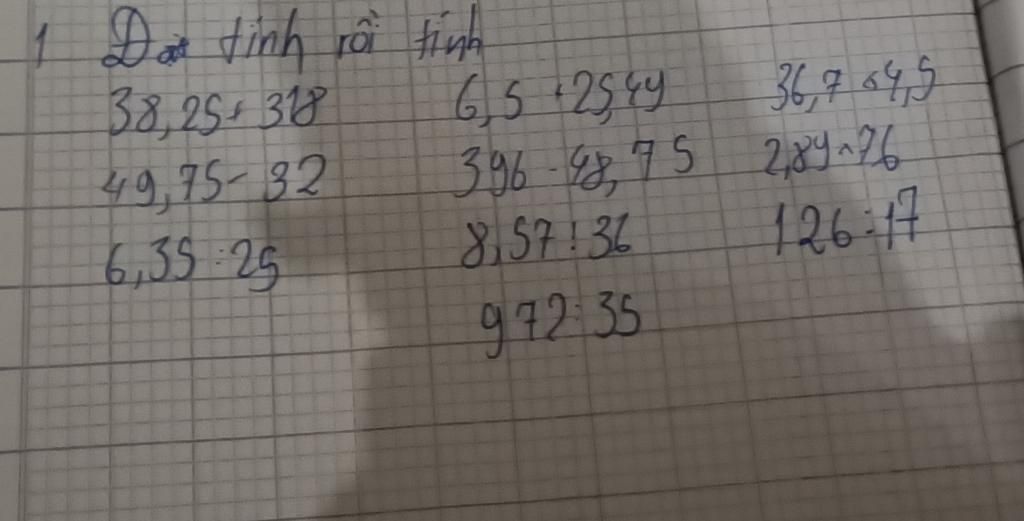 1 Đặt tính rồi tính
38,25 + 318 6,5 + 25,44 36,7 x 4,5
49,75 - 32 396 - 48,75 2,84 x 76
6,35 : 25 8,57 : 36 126 : 17
972 : 35